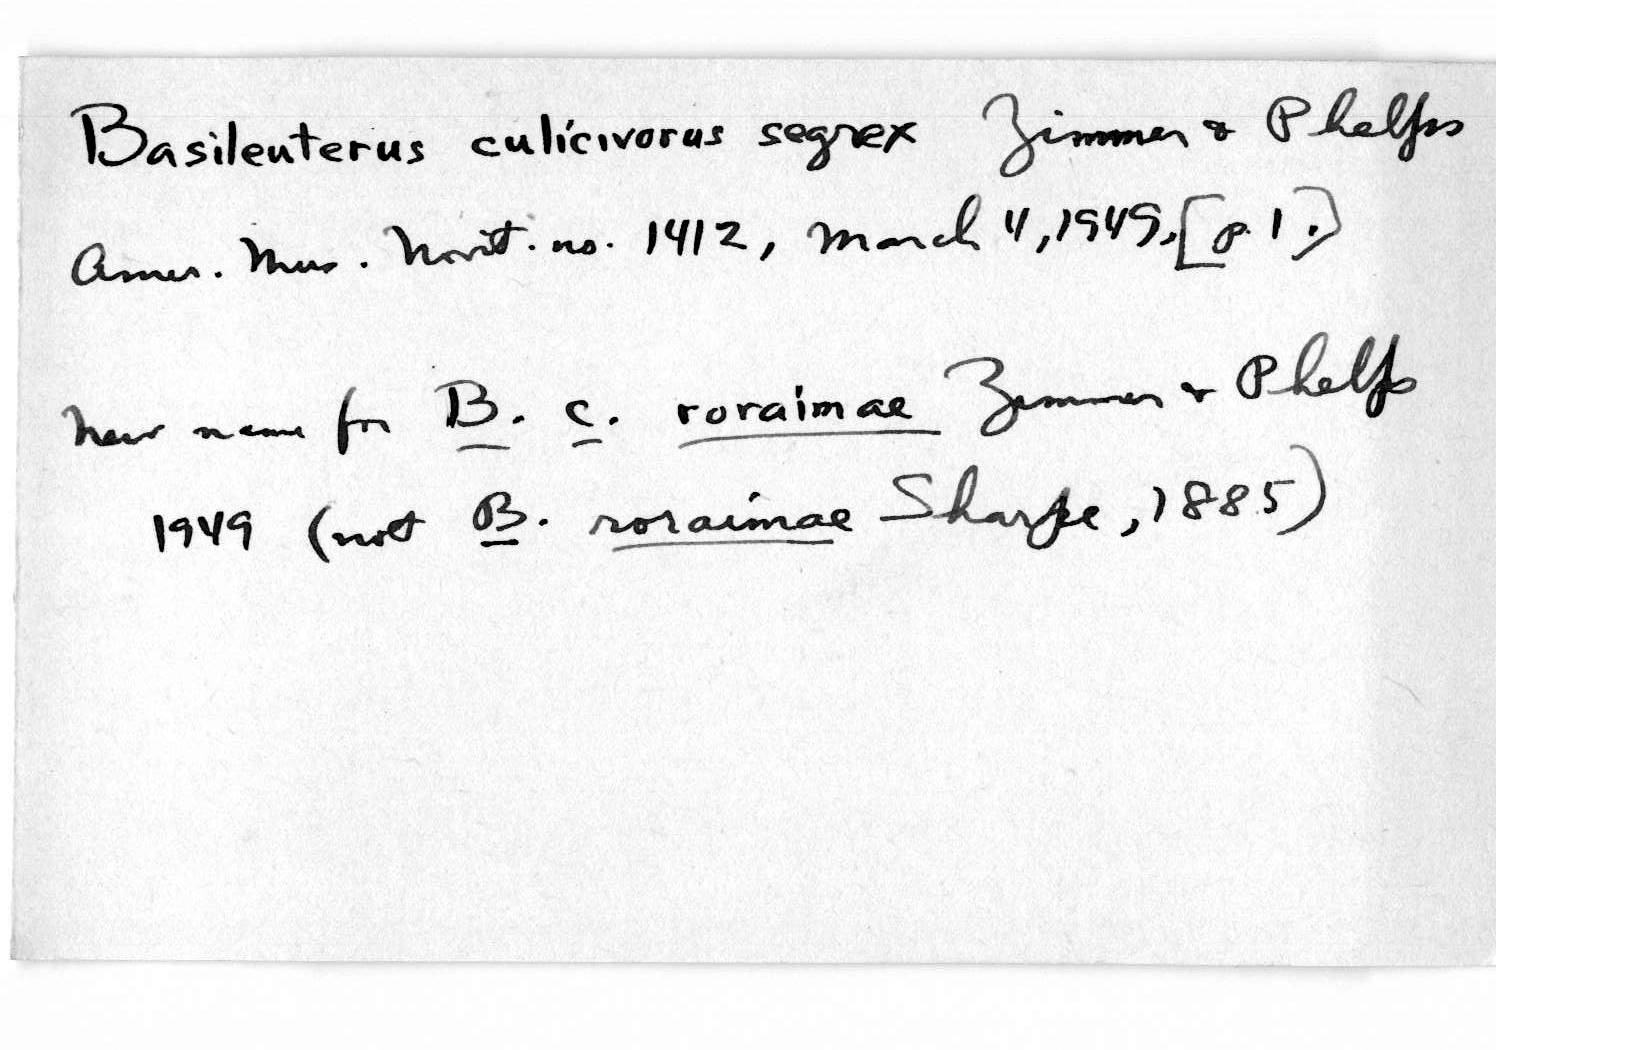 Basileuterus culicivorus segrex Zimmer & Phelps
Amer. Mus. Novit. no. 1412, March 4, 1949, [p. 1.]
New name for B. c. roraimae Zimmer & Phelps
1949 (not B. roraimae Sharpe, 1885)